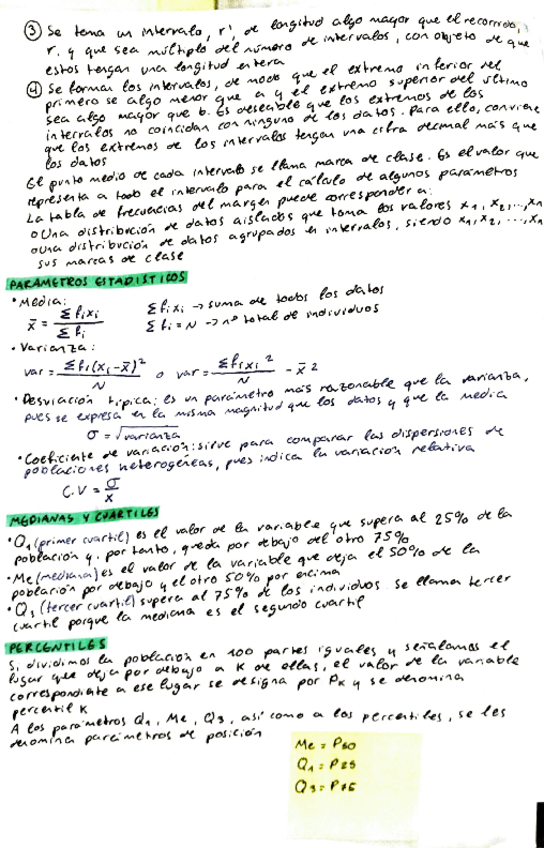 ③ Se toma un intervalo, r', de longitud algo mayor que el recorrido,
r, y que sea múltiplo del número de intervalos, con objeto de que
estos tengan una longitud entera
④ Se forman los intervalos, de modo que el extremo inferior del
primero se algo menor que a y el extremo superior del último
sea algo mayor que b. Es deseable que los extremos de los
intervalos no coincidan con ninguno de los datos. Para ello, conviene
que los extremos de los intervalos tengan una cifra decimal más que
los datos
El punto medio de cada intervalo se llama marca de clase. Es el valor que
representa a todo el intervalo para el cálculo de algunos parámetros
La tabla de frecuencias del margen puede corresponder a:
o Una distribución de datos aislados que toma los valores x₁, x₂,...,xn
o una distribución de datos agrupados en intervalos, siendo x₁, x₂, ...,xn
sus marcas de clase
PARAMETROS ESTADISTICOS
• Media:
x̄ = Σfixi / Σfi
Σfixi → suma de todos los datos
Σfi = N → nº total de individuos
• Varianza:
var = Σfi(xi - x̄)² / N o var = Σfixi² / N - x̄²
• Desviación típica: es un parámetro más razonable que la varianza,
pues se expresa en la misma magnitud que los datos y que la media
σ = √varianza
• Coeficiente de variación: sirve para comparar las dispersiones de
poblaciones heterogéneas, pues indica la variación relativa
C.V = σ / x̄
MEDIANAS Y CUARTILES
• Q₁ (primer cuartil) es el valor de la variable que supera al 25% de la
población y, por tanto, queda por debajo del otro 75%
• Me (mediana) es el valor de la variable que deja el 50% de la
población por debajo y el otro 50% por encima
• Q₃ (tercer cuartil) supera al 75% de los individuos. Se llama tercer
cuartil porque la mediana es el segundo cuartil
PERCENTILES
Si dividimos la población en 100 partes iguales y señalamos el
lugar que deja por debajo a K de ellas, el valor de la variable
correspondiente a ese lugar se designa por PK y se denomina
percentil K
A los parámetros Q₁, Me, Q₃, así como a los percentiles, se les
denomina parámetros de posición
Me = P50
Q₁ = P25
Q₃ = P75